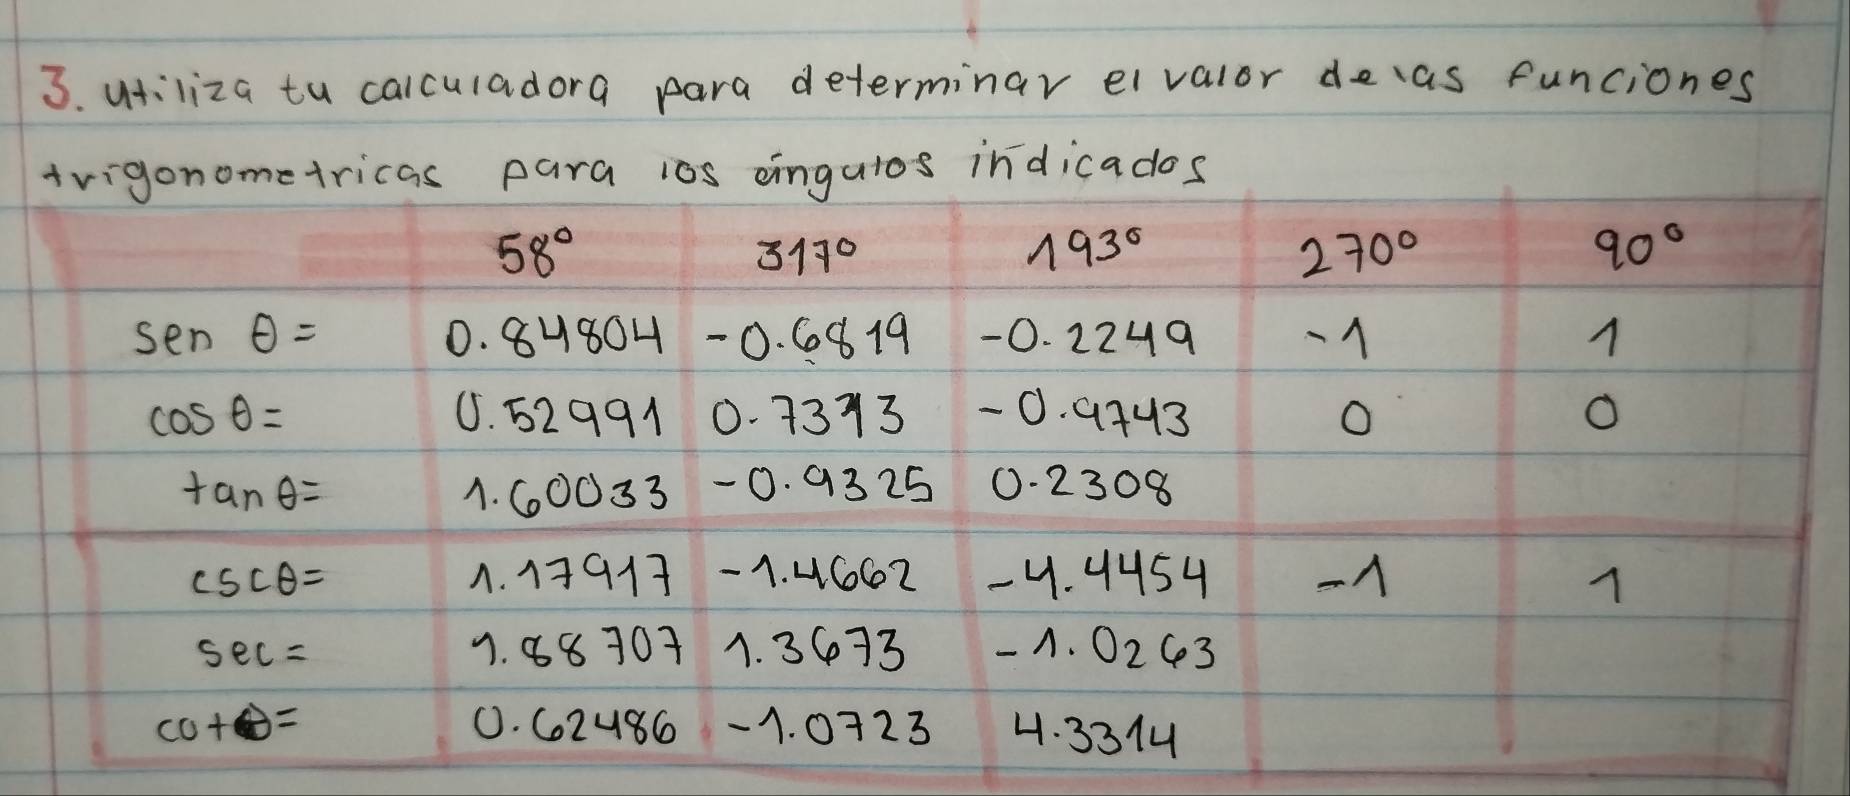 3. utiliza tu calculadora para determinar el valor de las funciones
trigonometricas para los ángulos indicados
58° 317° 193° 270° 90°
sen θ= 0.84804 -0.6819 -0.2249 -1 1
cos θ= 0.52991 0.7313 -0.9743 0 0
tan θ= 1.60033 -0.9325 0.2308
csc θ= 1.17917 -1.4662 -4.4454 -1 1
sec = 1.88707 1.3673 -1.0263
cot θ= 0.62486 -1.0723 4.3314